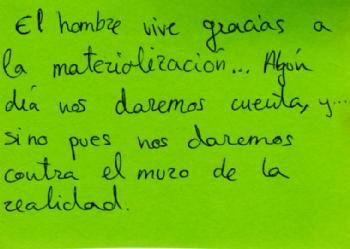 El hombre vive gracias a
la materiolización... Algún
día nos daremos cuenta, y...
sino pues nos daremos
contra el muro de la
realidad.